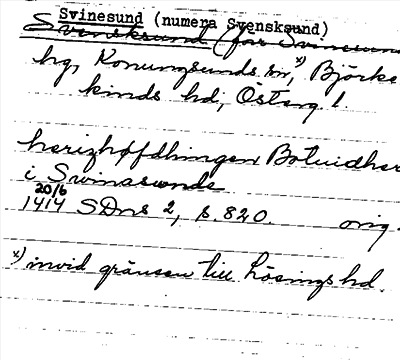 Svinesund (numera Svensksund)
Svensksund (för Svinesund
hg, Konungsunds sn, x) Björke
kinds hd, Östergl.
herizhøfdhingen Botuidher
i Swinasunde
20/6
1414 SDns 2, s. 820. orig.
x) invid gränsen till Lösings hd.